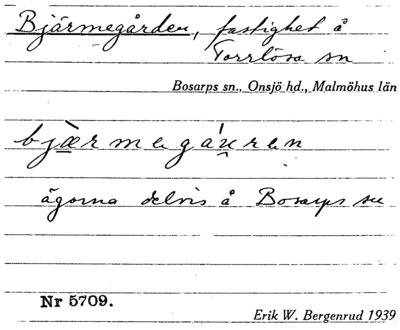 Bjärmegården, fastighet å
Torrlösa sn
Bosarps sn., Onsjö hd., Malmöhus län
bjæ̀rmegáu̯ren
ägorna delvis å Bosarps sn
Nr 5709.
Erik W. Bergenrud 1939